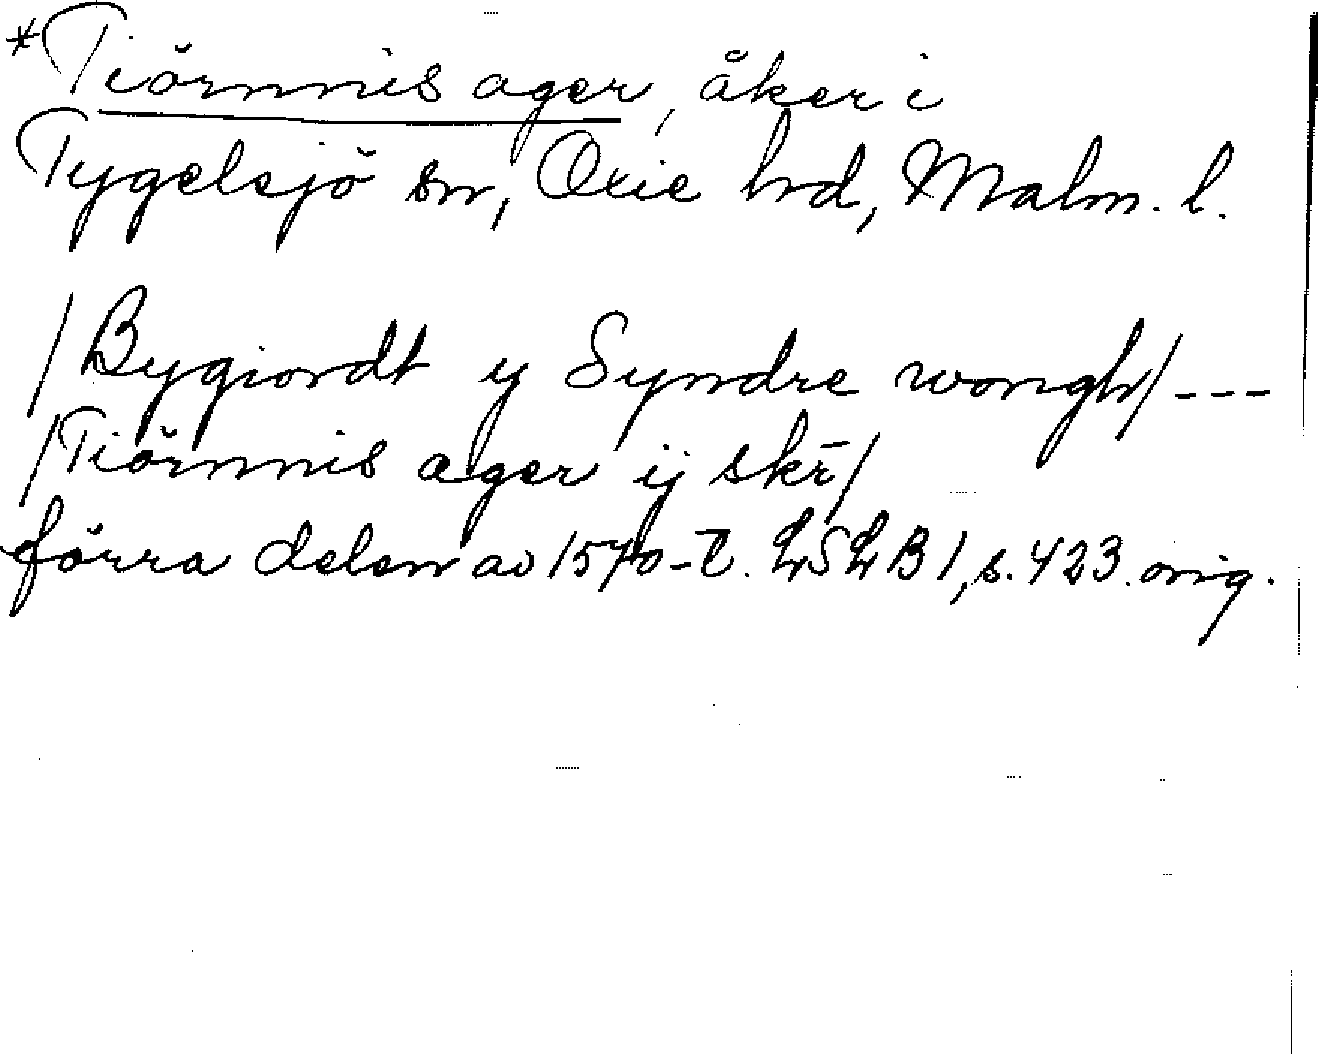 *Tiörnnis ager, åker i
Tygelsjö sn, Oxie hrd, Malm. l.
/Bygiordt y Syndre wongh/ ---
/Tiörnnis ager ij skr̄/
förra delen av 1570-t. LSLB 1, s. 423. orig.